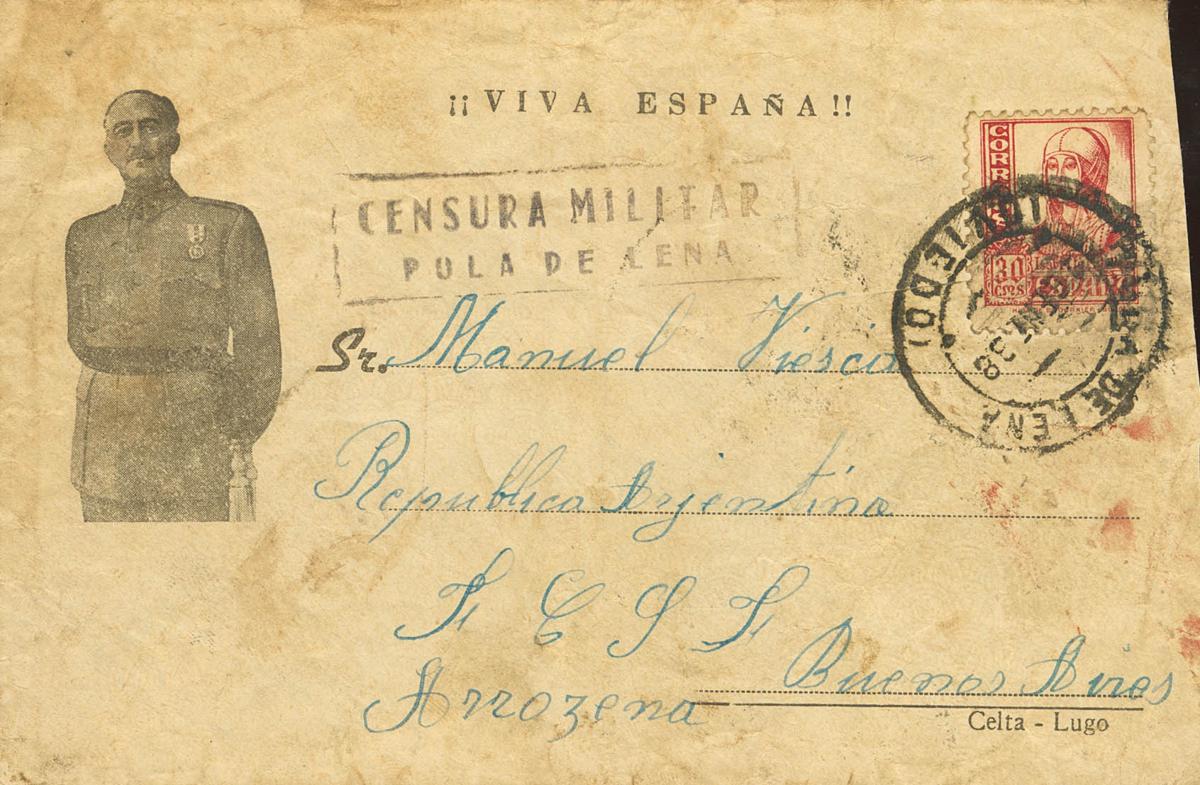 ¡¡VIVA ESPAÑA!!
CORREOS
30
CMS
ESPAÑA
CENSURA MILITAR
POLA DE LENA
POLA DE LENA
(OVIEDO)
38
Sr. Manuel Viesca
Republica Arjentina
F C S F
Buenos Aires
Arrozena
Celta - Lugo